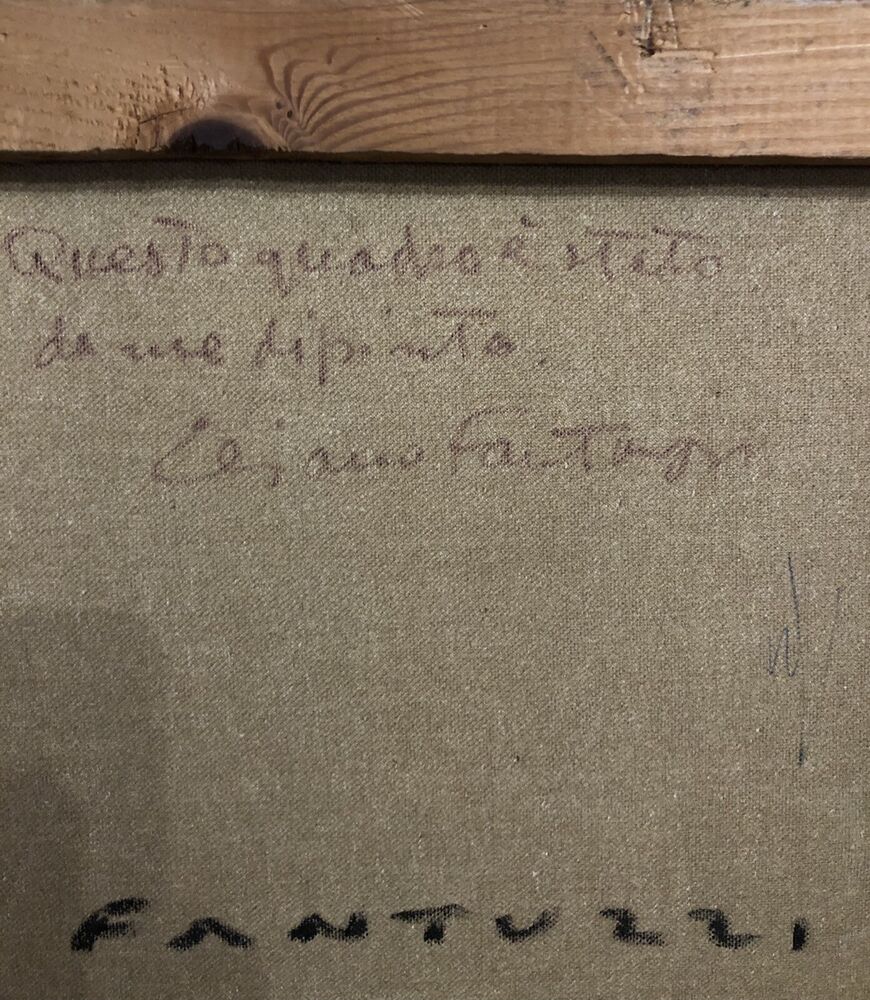 Questo quadro è stato
da me dipinto.
Eliano Fantuzzi
FANTUZZI